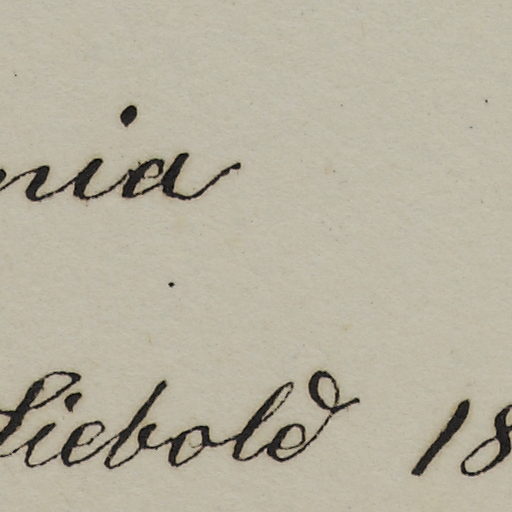 nia
Siebold 18